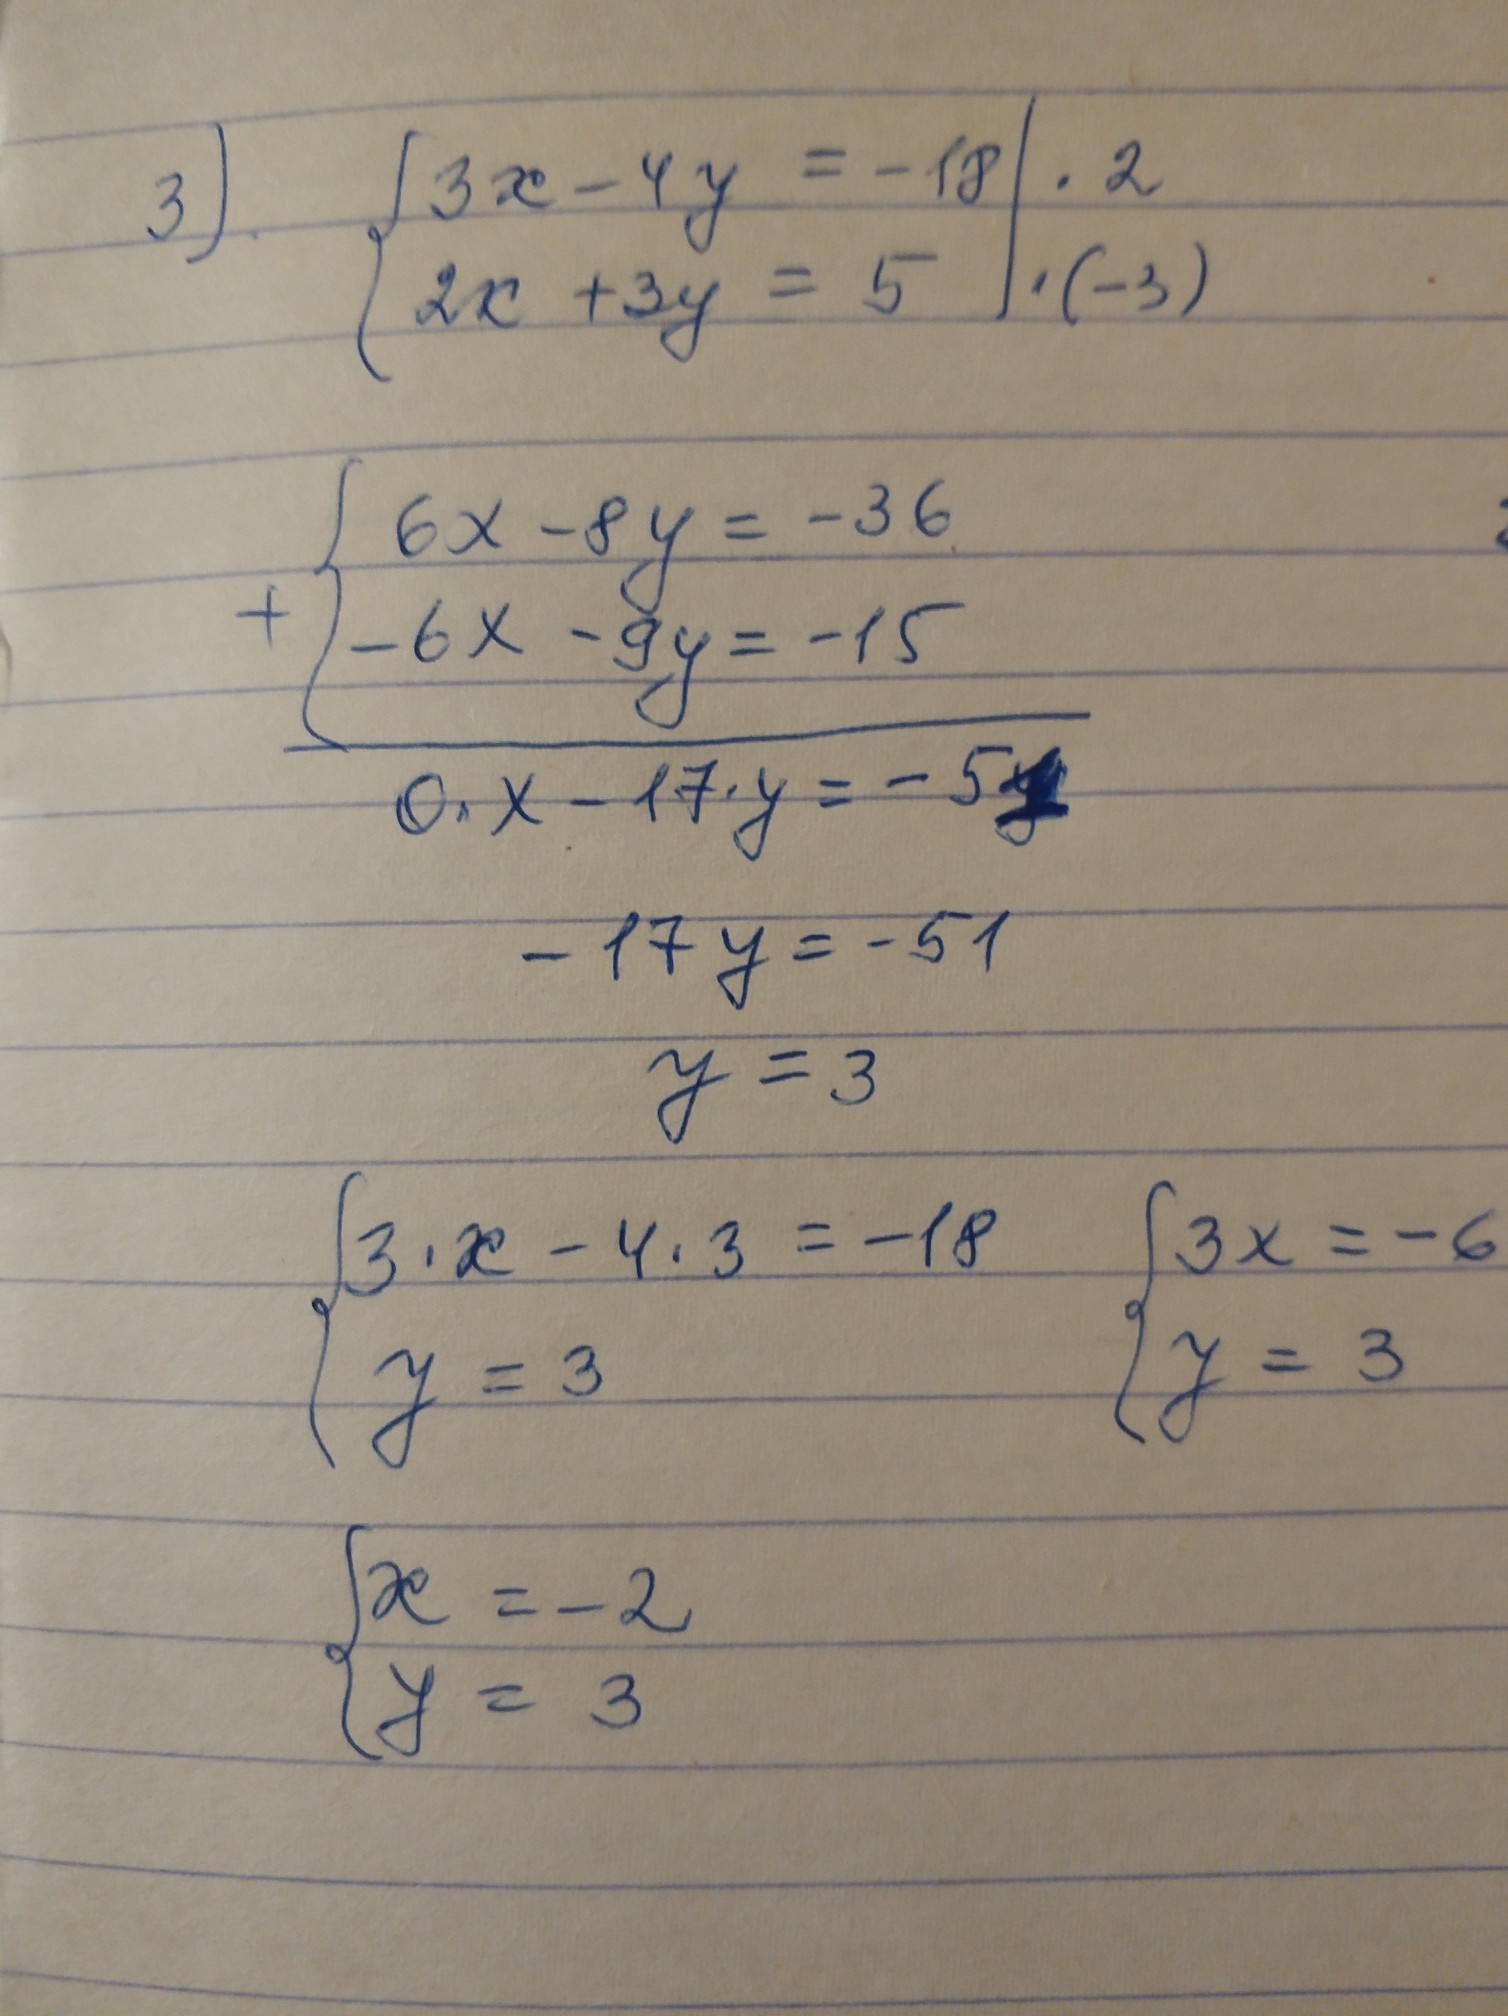 3). { 3x - 4y = -18 | · 2
2x + 3y = 5 | · (-3)
+ { 6x - 8y = -36
-6x - 9y = -15
0 · x - 17 · y = -51
-17y = -51
y = 3
{ 3 · x - 4 · 3 = -18 { 3x = -6
y = 3 y = 3
{ x = -2
y = 3